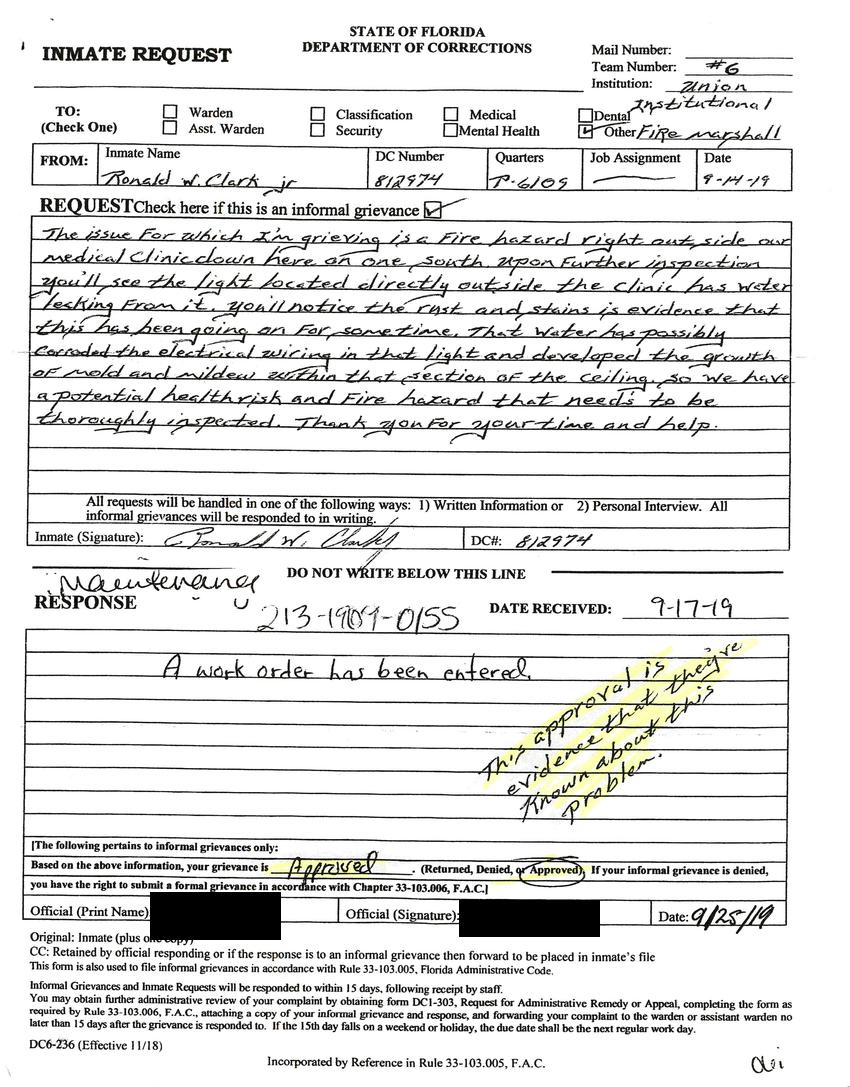 STATE OF FLORIDA
DEPARTMENT OF CORRECTIONS
INMATE REQUEST
Mail Number:
Team Number: #6
Institution: Union
Institutional
TO:
(Check One)
Warden
Asst. Warden
Classification
Security
Medical
Mental Health
Dental
Other Fire marshall
FROM:
Inmate Name
Ronald W. Clark jr
DC Number
812974
Quarters
P-6109
Job Assignment
Date
9-14-19
REQUEST Check here if this is an informal grievance
The issue For which I'm grieving is a Fire hazard right out side our
medical Clinic down here on one south upon Further inspection
you'll see the light located directly outside the clinic has water
leeking From it. You'll notice the rust and stains is evidence that
this has been going on For sometime. That water has possibly
corroded the electrical wiring in that light and developed the growth
of mold and mildew within that section of the ceiling, so we have
a potential health risk and Fire hazard that needs to be
thoroughly inspected. Thank you For your time and help.
All requests will be handled in one of the following ways: 1) Written Information or 2) Personal Interview. All
informal grievances will be responded to in writing.
Inmate (Signature): Ronald W. Clark jr
DC#: 812974
DO NOT WRITE BELOW THIS LINE
Maintenance
RESPONSE
213-1909-0155
DATE RECEIVED: 9-17-19
A work order has been entered.
This approval is
evidence that they've
Known about this
problem.
[The following pertains to informal grievances only:
Based on the above information, your grievance is Approved. (Returned, Denied, or Approved). If your informal grievance is denied,
you have the right to submit a formal grievance in accordance with Chapter 33-103.006, F.A.C.]
Official (Print Name):
Official (Signature):
Date: 9/25/19
Original: Inmate (plus one copy)
CC: Retained by official responding or if the response is to an informal grievance then forward to be placed in inmate's file
This form is also used to file informal grievances in accordance with Rule 33-103.005, Florida Administrative Code.
Informal Grievances and Inmate Requests will be responded to within 15 days, following receipt by staff.
You may obtain further administrative review of your complaint by obtaining form DC1-303, Request for Administrative Remedy or Appeal, completing the form as
required by Rule 33-103.006, F.A.C., attaching a copy of your informal grievance and response, and forwarding your complaint to the warden or assistant warden no
later than 15 days after the grievance is responded to. If the 15th day falls on a weekend or holiday, the due date shall be the next regular work day.
DC6-236 (Effective 11/18)
Incorporated by Reference in Rule 33-103.005, F.A.C.